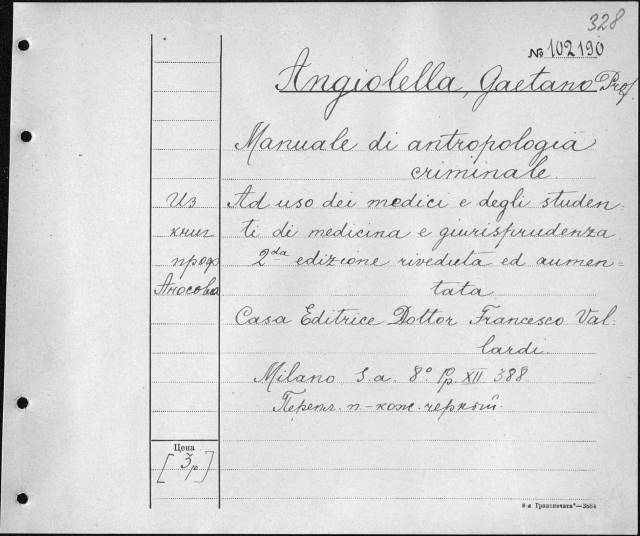 328
№ 102190
Angiolella, Gaetano Prof
Manuale di antropologia
criminale.
Из
книг
проф
Аносова
Ad uso dei medici e degli studen-
ti di medicina e giurisprudenza
2da edizione riveduta ed aumen=
tata
Casa Editrice Dottor Francesco Val-
lardi.
Milano s.a. 8° Pp. XII 388
Перепл. п-кож. черный
Цена
[3 р]
8-я Гранпечать"—3584